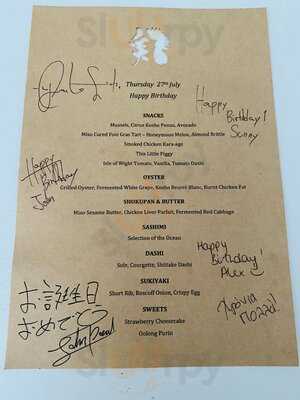 Thursday 27th July
Happy Birthday
SNACKS
Mussels, Citrus Kosho Ponzu, Avocado
Miso Cured Foie Gras Tart – Honeymoon Melon, Almond Brittle
Smoked Chicken Kara-age
This Little Piggy
Isle of Wight Tomato, Vanilla, Tomato Dashi
OYSTER
Grilled Oyster, Fermented White Grape, Kosho Beurre Blanc, Burnt Chicken Fat
SHOKUPAN & BUTTER
Miso Sesame Butter, Chicken Liver Parfait, Fermented Red Cabbage
SASHIMI
Selection of the Ocean
DASHI
Sole, Courgette, Shiitake Dashi
SUKIYAKI
Short Rib, Roscoff Onion, Crispy Egg
SWEETS
Strawberry Cheesecake
Oolong Purin
Happy
Birthday!
Sunny
Happy
Birthday
John
Happy
Birthday!
Alex
Χρόνια
Πολλά!
お誕生日
おめでとう